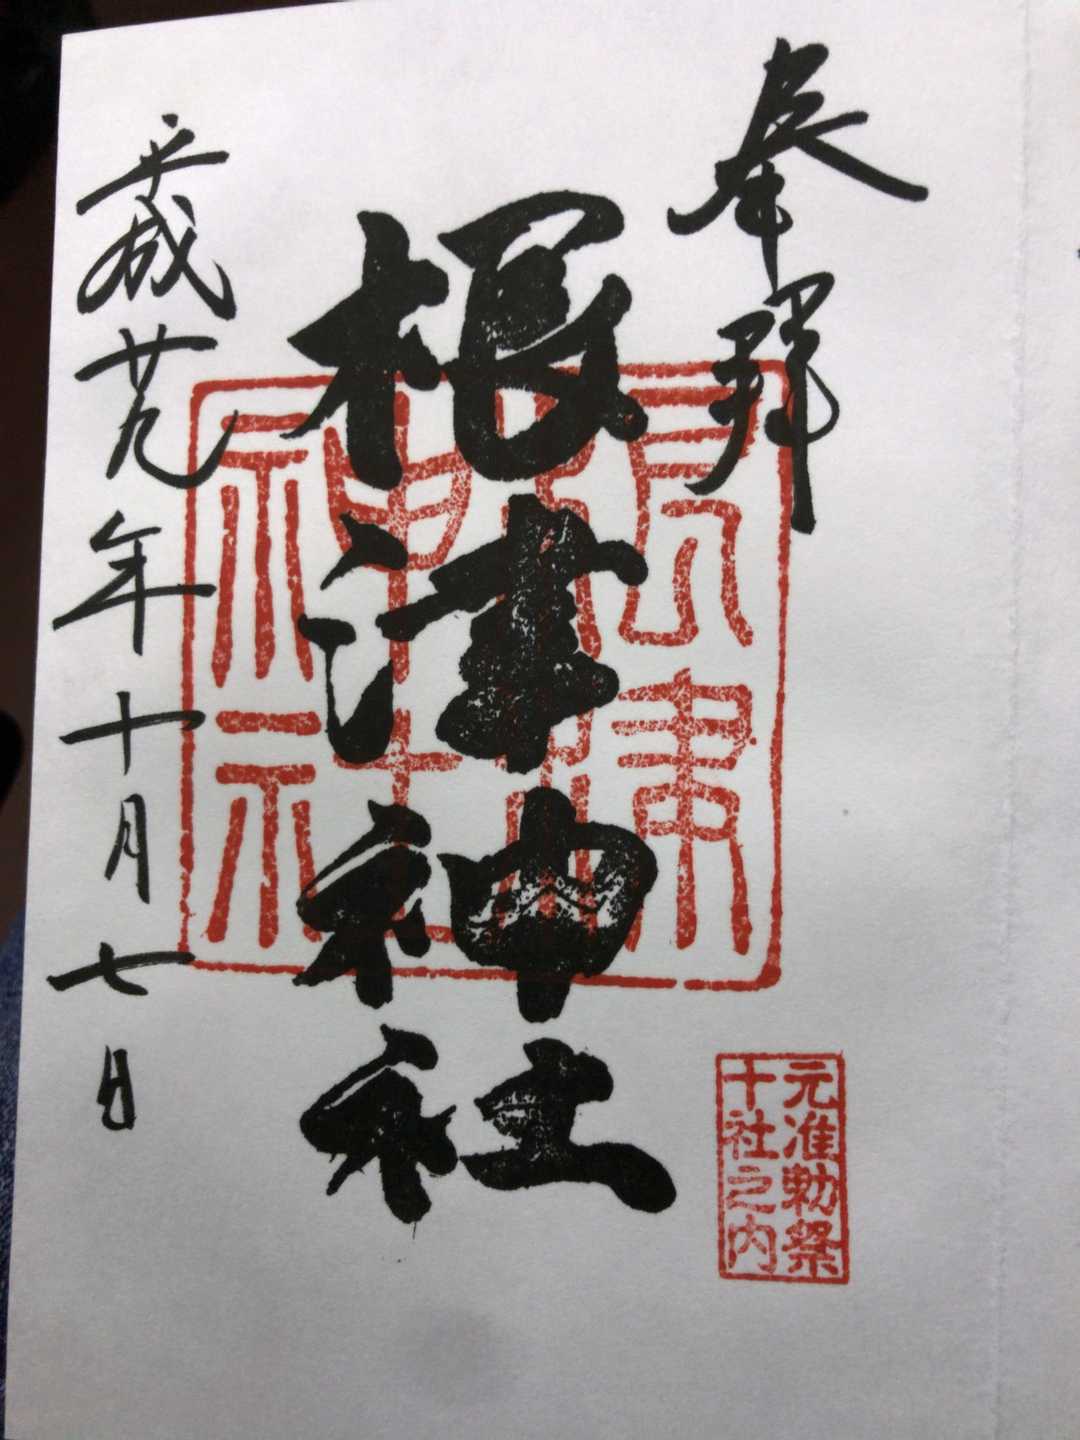 奉拝
根津神社
根津神社
元准勅祭
十社之内
平成廿九年十月七日